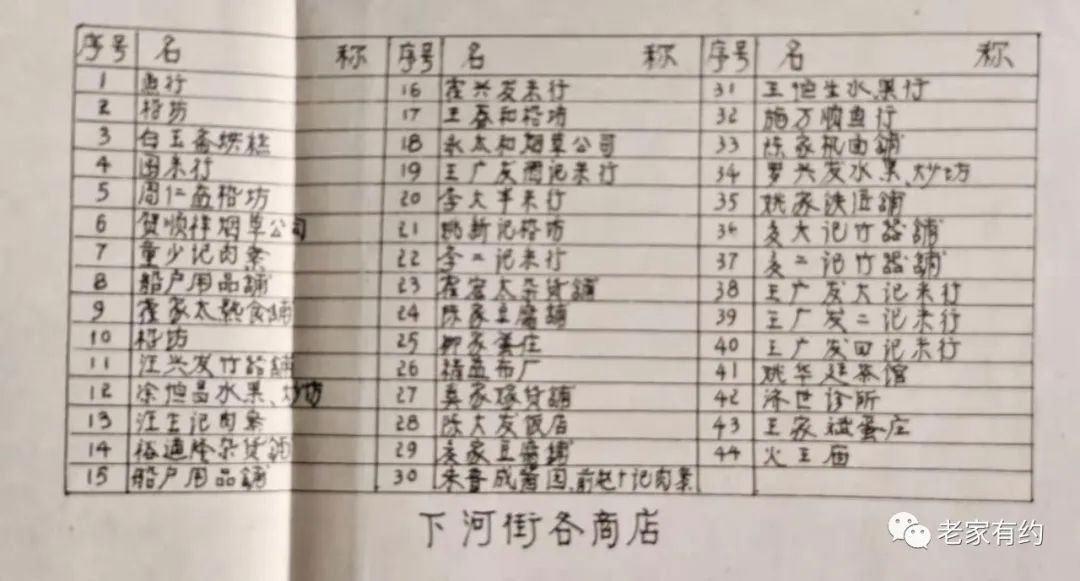 序号 名 称 序号 名 称 序号 名 称
1 鱼行 16 霍兴发米行 31 王恒生水果行
2 槽坊 17 王春和槽坊 32 施万顺鱼行
3 白玉斋烘糕 18 永太和烟草公司 33 陈家机面铺
4 周米行 19 王广发酒记米行 34 罗兴发水果、炒坊
5 周仁益槽坊 20 李大丰米行 35 姚家铁匠铺
6 贺顺祥烟草公司 21 姚新记槽坊 36 夌大记竹器铺
7 童少记肉案 22 李二记米行 37 夌二记竹器铺
8 船户用品铺 23 霍宏太杂货铺 38 王广发大记米行
9 霍家太熟食铺 24 陈家豆腐铺 39 王广发二记米行
10 槽坊 25 柳家蛋庄 40 王广发四记米行
11 汪兴发竹器铺 26 精益布厂 41 姚华廷茶馆
12 涂恒昌水果、炒坊 27 龚家瓷货铺 42 济世诊所
13 汪生记肉案 28 陈大发饭店 43 王家斌蛋庄
14 裕通隆杂货铺 29 夌家豆腐铺 44 火王庙
15 船户用品铺 30 朱晋成酱园、前赵记肉案
下河街各商店
老家有约